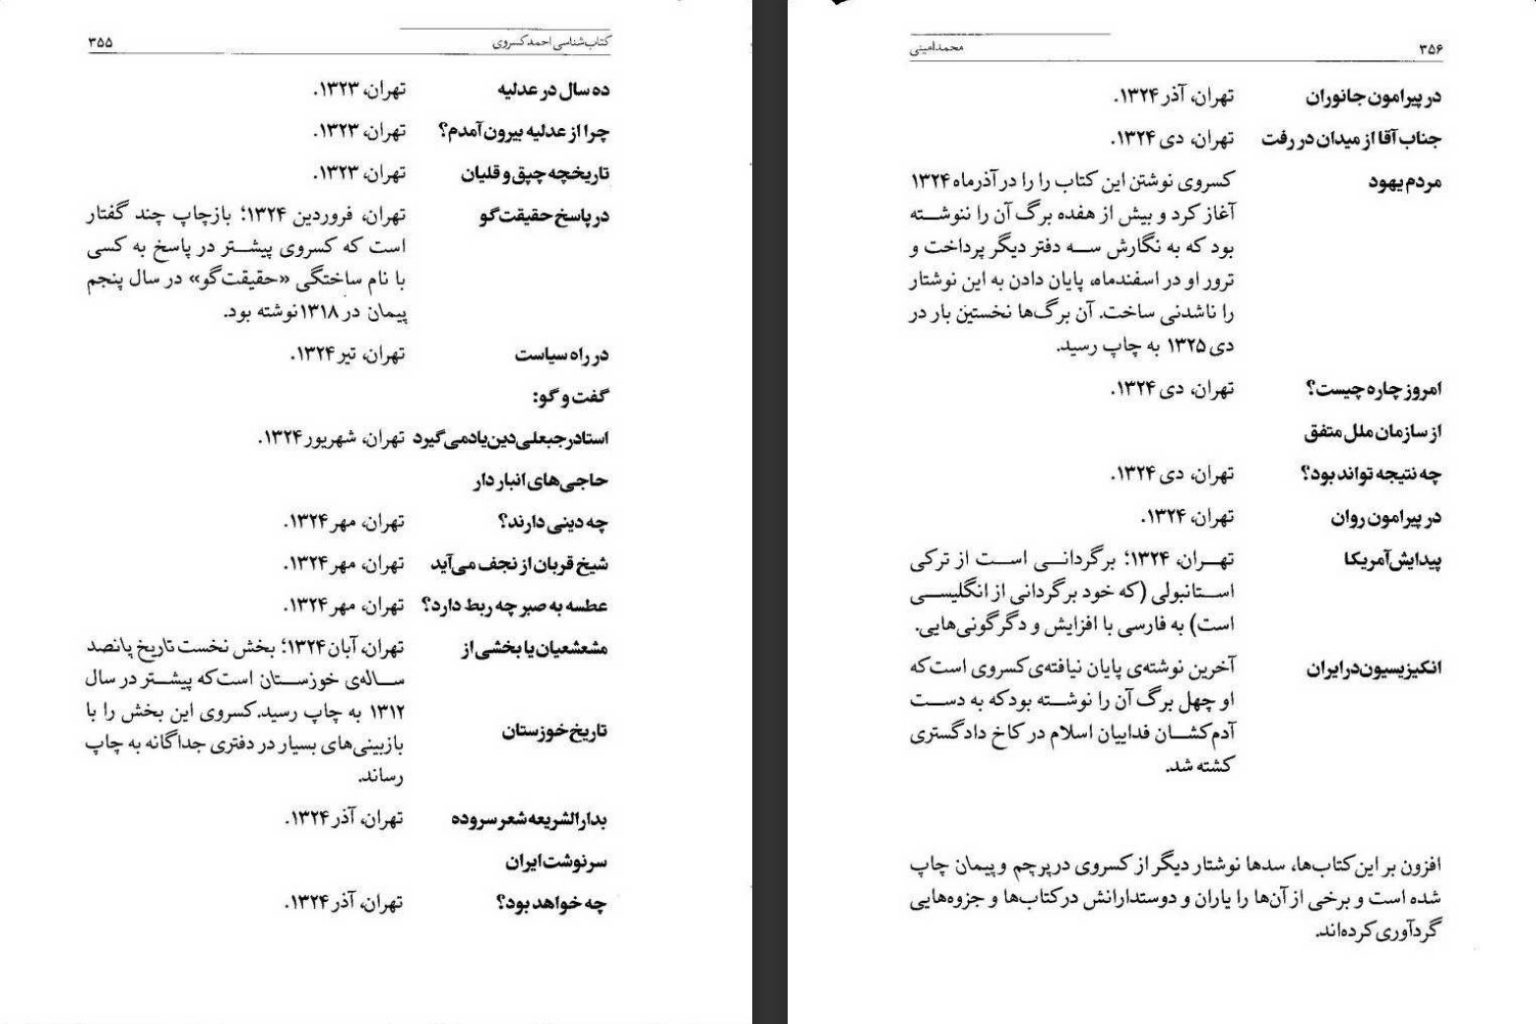 کتاب‌شناسی احمد کسروی ۳۵۵
ده سال در عدلیه تهران، ۱۳۲۳.
چرا از عدلیه بیرون آمدم؟ تهران، ۱۳۲۳.
تاریخچه چپق و قلیان تهران، ۱۳۲۳.
در پاسخ حقیقت‌گو تهران، فروردین ۱۳۲۴؛ بازچاپ چند گفتار
است که کسروی پیشتر در پاسخ به کسی
با نام ساختگی «حقیقت‌گو» در سال پنجم
پیمان در ۱۳۱۸ نوشته بود.
در راه سیاست تهران، تیر ۱۳۲۴.
گفت و گو:
استاد رجبعلی دین یاد می‌گیرد تهران، شهریور ۱۳۲۴.
حاجی‌های انبار دار
چه دینی دارند؟ تهران، مهر ۱۳۲۴.
شیخ قربان از نجف می‌آید تهران، مهر ۱۳۲۴.
عطسه به صبر چه ربط دارد؟ تهران، مهر ۱۳۲۴.
مشعشعیان یا بخشی از تهران، آبان ۱۳۲۴؛ بخش نخست تاریخ پانصد
ساله‌ی خوزستان است که پیشتر در سال
۱۳۱۲ به چاپ رسید. کسروی این بخش را با
تاریخ خوزستان
بازبینی‌های بسیار در دفتری جداگانه به چاپ
رساند.
بدار الشریعه شعر سروده تهران، آذر ۱۳۲۴.
سرنوشت ایران
چه خواهد بود؟ تهران، آذر ۱۳۲۴.
۳۵۶ محمد امینی
در پیرامون جانوران تهران، آذر ۱۳۲۴.
جناب آقا از میدان در رفت تهران، دی ۱۳۲۴.
مردم یهود کسروی نوشتن این کتاب را در آذرماه ۱۳۲۴
آغاز کرد و بیش از هفده برگ آن را ننوشته
بود که به نگارش سه دفتر دیگر پرداخت و
ترور او در اسفندماه، پایان دادن به این نوشتار
را ناشدنی ساخت. آن برگ‌ها نخستین بار در
دی ۱۳۲۵ به چاپ رسید.
امروز چاره چیست؟ تهران، دی ۱۳۲۴.
از سازمان ملل متفق
چه نتیجه تواند بود؟ تهران، دی ۱۳۲۴.
در پیرامون روان تهران، ۱۳۲۴.
پیدایش آمریکا تهران، ۱۳۲۴؛ برگردانی است از ترکی
استانبولی (که خود برگردانی از انگلیسی
است) به فارسی با افزایش و دگرگونی‌هایی.
انگیزیسیون در ایران آخرین نوشته‌ی پایان نیافته‌ی کسروی است که
او چهل برگ آن را نوشته بود که به دست
آدم‌کشان فداییان اسلام در کاخ دادگستری
کشته شد.
افزون بر این کتاب‌ها، سدها نوشتار دیگر از کسروی در پرچم و پیمان چاپ
شده است و برخی از آن‌ها را یاران و دوستدارانش در کتاب‌ها و جزوه‌هایی
گردآوری کرده‌اند.